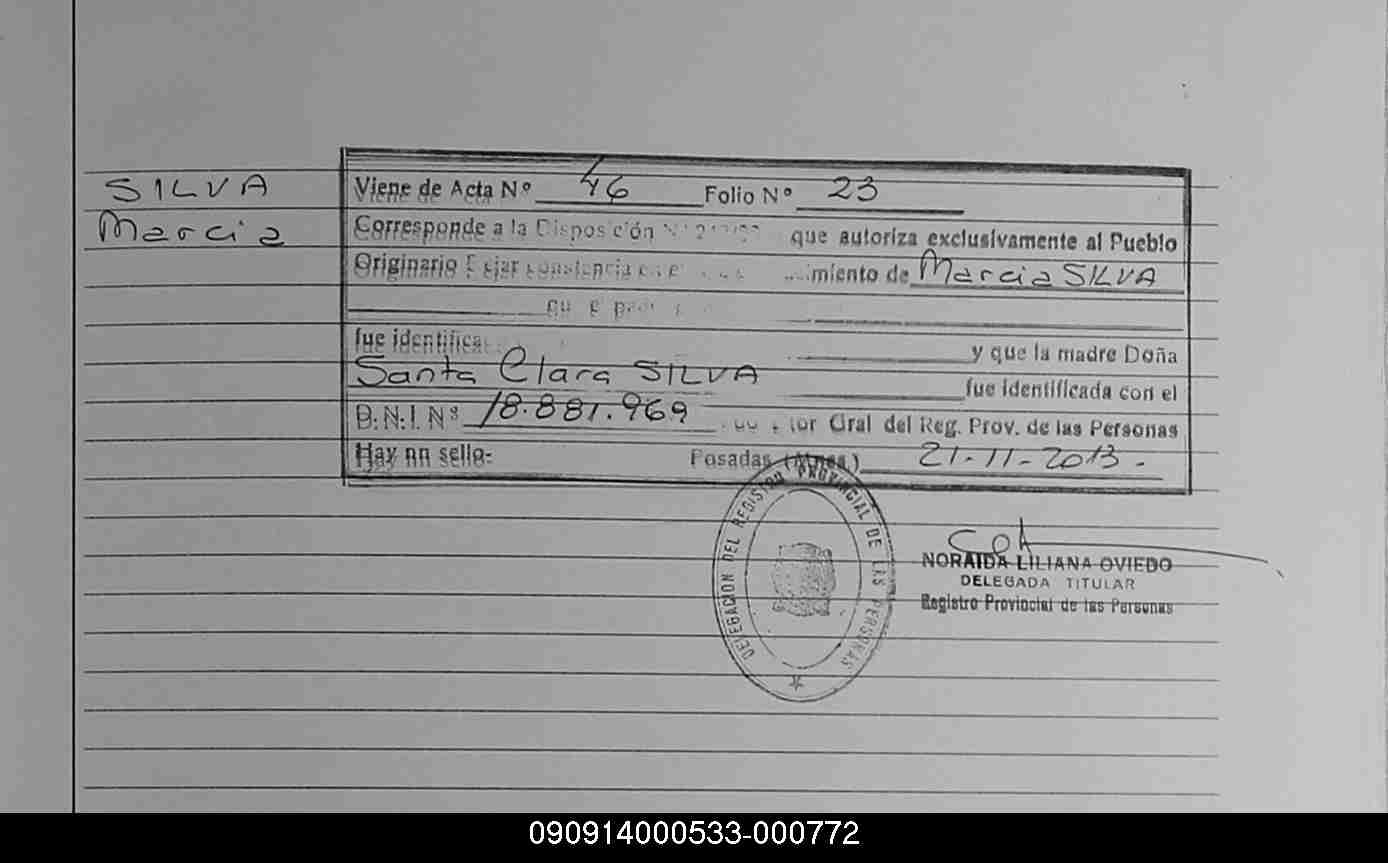 SILVA
Marcia
Viene de Acta Nº 46 Folio Nº 23
Corresponde a la Disposición Nº que autoriza exclusivamente al Pueblo
Originario miento de Marcia SILVA
fue identifica
y que la madre Doña
Santa Clara SILVA fue identificada con el
D.N.I. Nº 18.881.969 Gral del Reg. Prov. de las Personas
Hay un sello- Posadas (Mnes.) 21-11-2013.-
DELEGACION DEL REGISTRO PROVINCIAL DE LAS PERSONAS
NORAIDA LILIANA OVIEDO
DELEGADA TITULAR
Registro Provincial de las Personas
090914000533-000772